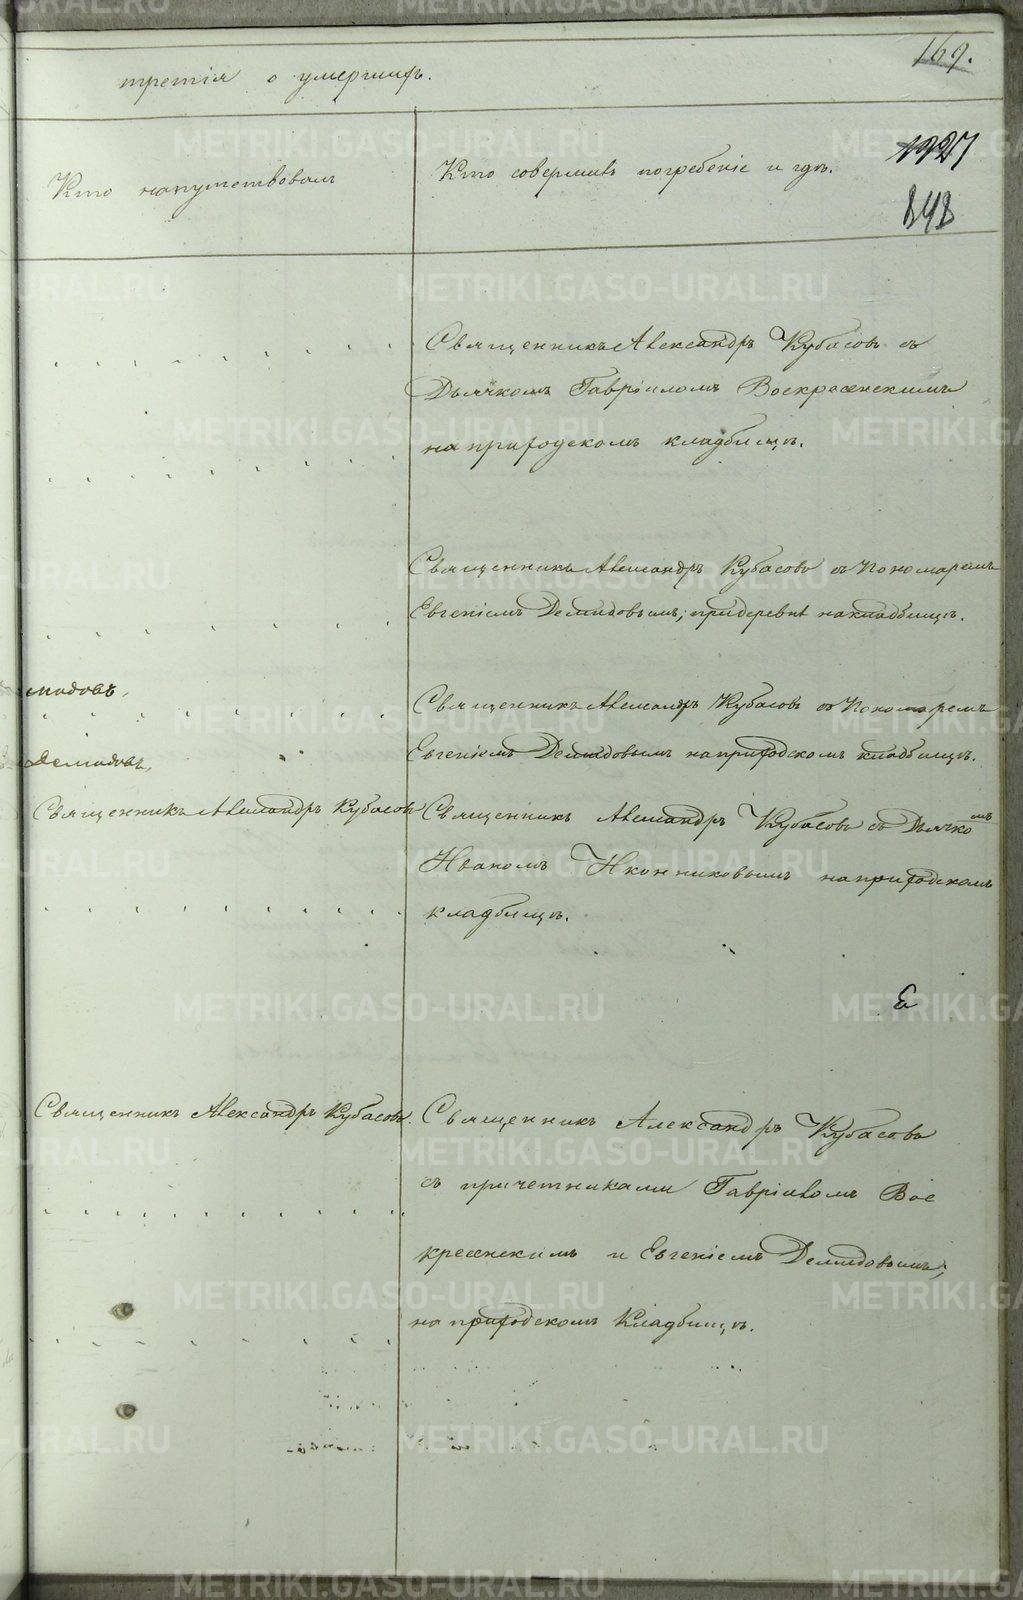 169.
третія о умершихъ.
Кто напутствовалъ
Кто совершилъ погребеніе и гдѣ.
848
Священникъ Александръ Кубасовъ съ
Дьячкомъ Гавріиломъ Воскресенскимъ
на приходскомъ кладбищѣ.
Священникъ Александръ Кубасовъ съ Пономаремъ
Евгеніемъ Демидовымъ, при деревнѣ на кладбищѣ.
мидовъ,
Священникъ Александръ Кубасовъ съ Пономаремъ
Демидовъ,
Евгеніемъ Демидовымъ на приходскомъ кладбищѣ.
Священникъ Александръ Кубасовъ
Священникъ Александръ Кубасовъ съ Дьячкомъ
Иваномъ Иконниковымъ на приходскомъ
кладбищѣ.
Священникъ Александръ Кубасовъ.
Священникъ Александръ Кубасовъ
съ причетниками Гавріиломъ Вос
кресенскимъ и Евгеніемъ Демидовымъ,
на приходскомъ Кладбищѣ.
METRIKI.GASO-URAL.RU